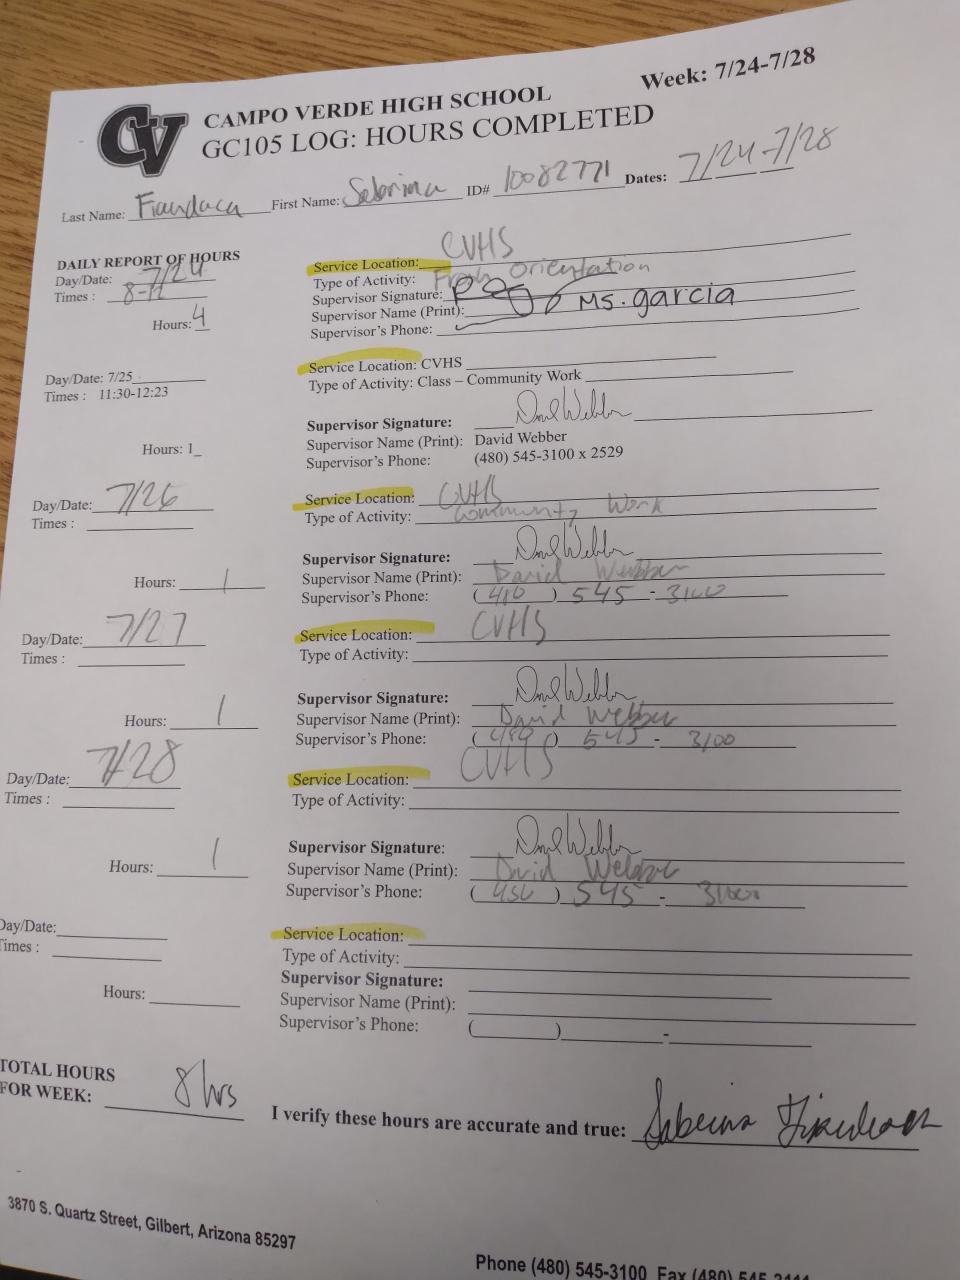 Week: 7/24-7/28
CV
CAMPO VERDE HIGH SCHOOL
GC105 LOG: HOURS COMPLETED
Last Name: Fiandaca First Name: Sabrina ID# 10082771 Dates: 7/24-7/28
DAILY REPORT OF HOURS
Day/Date: 7/24
Times : 8-12
Hours: 4
Service Location: CVHS
Type of Activity: Fresh Orientation
Supervisor Signature:
Supervisor Name (Print): Ms. garcia
Supervisor's Phone:
Day/Date: 7/25
Times : 11:30-12:23
Hours: 1
Service Location: CVHS
Type of Activity: Class – Community Work
Supervisor Signature: David Webber
Supervisor Name (Print): David Webber
Supervisor's Phone: (480) 545-3100 x 2529
Day/Date: 7/26
Times :
Hours: 1
Service Location: CVHS
Type of Activity: Community Work
Supervisor Signature: David Webber
Supervisor Name (Print): David Webber
Supervisor's Phone: (480) 545-3100
Day/Date: 7/27
Times :
Hours: 1
Service Location: CVHS
Type of Activity:
Supervisor Signature: David Webber
Supervisor Name (Print): David Webber
Supervisor's Phone: (480) 545-3100
Day/Date: 7/28
Times :
Hours: 1
Service Location: CVHS
Type of Activity:
Supervisor Signature: David Webber
Supervisor Name (Print): David Webber
Supervisor's Phone: ( ) 545 - 3100
Day/Date:
Times :
Hours:
Service Location:
Type of Activity:
Supervisor Signature:
Supervisor Name (Print):
Supervisor's Phone: ( ) -
TOTAL HOURS
FOR WEEK: 8 hrs
I verify these hours are accurate and true: Sabrina Fiandaca
3870 S. Quartz Street, Gilbert, Arizona 85297
Phone (480) 545-3100 Fax (480) 545